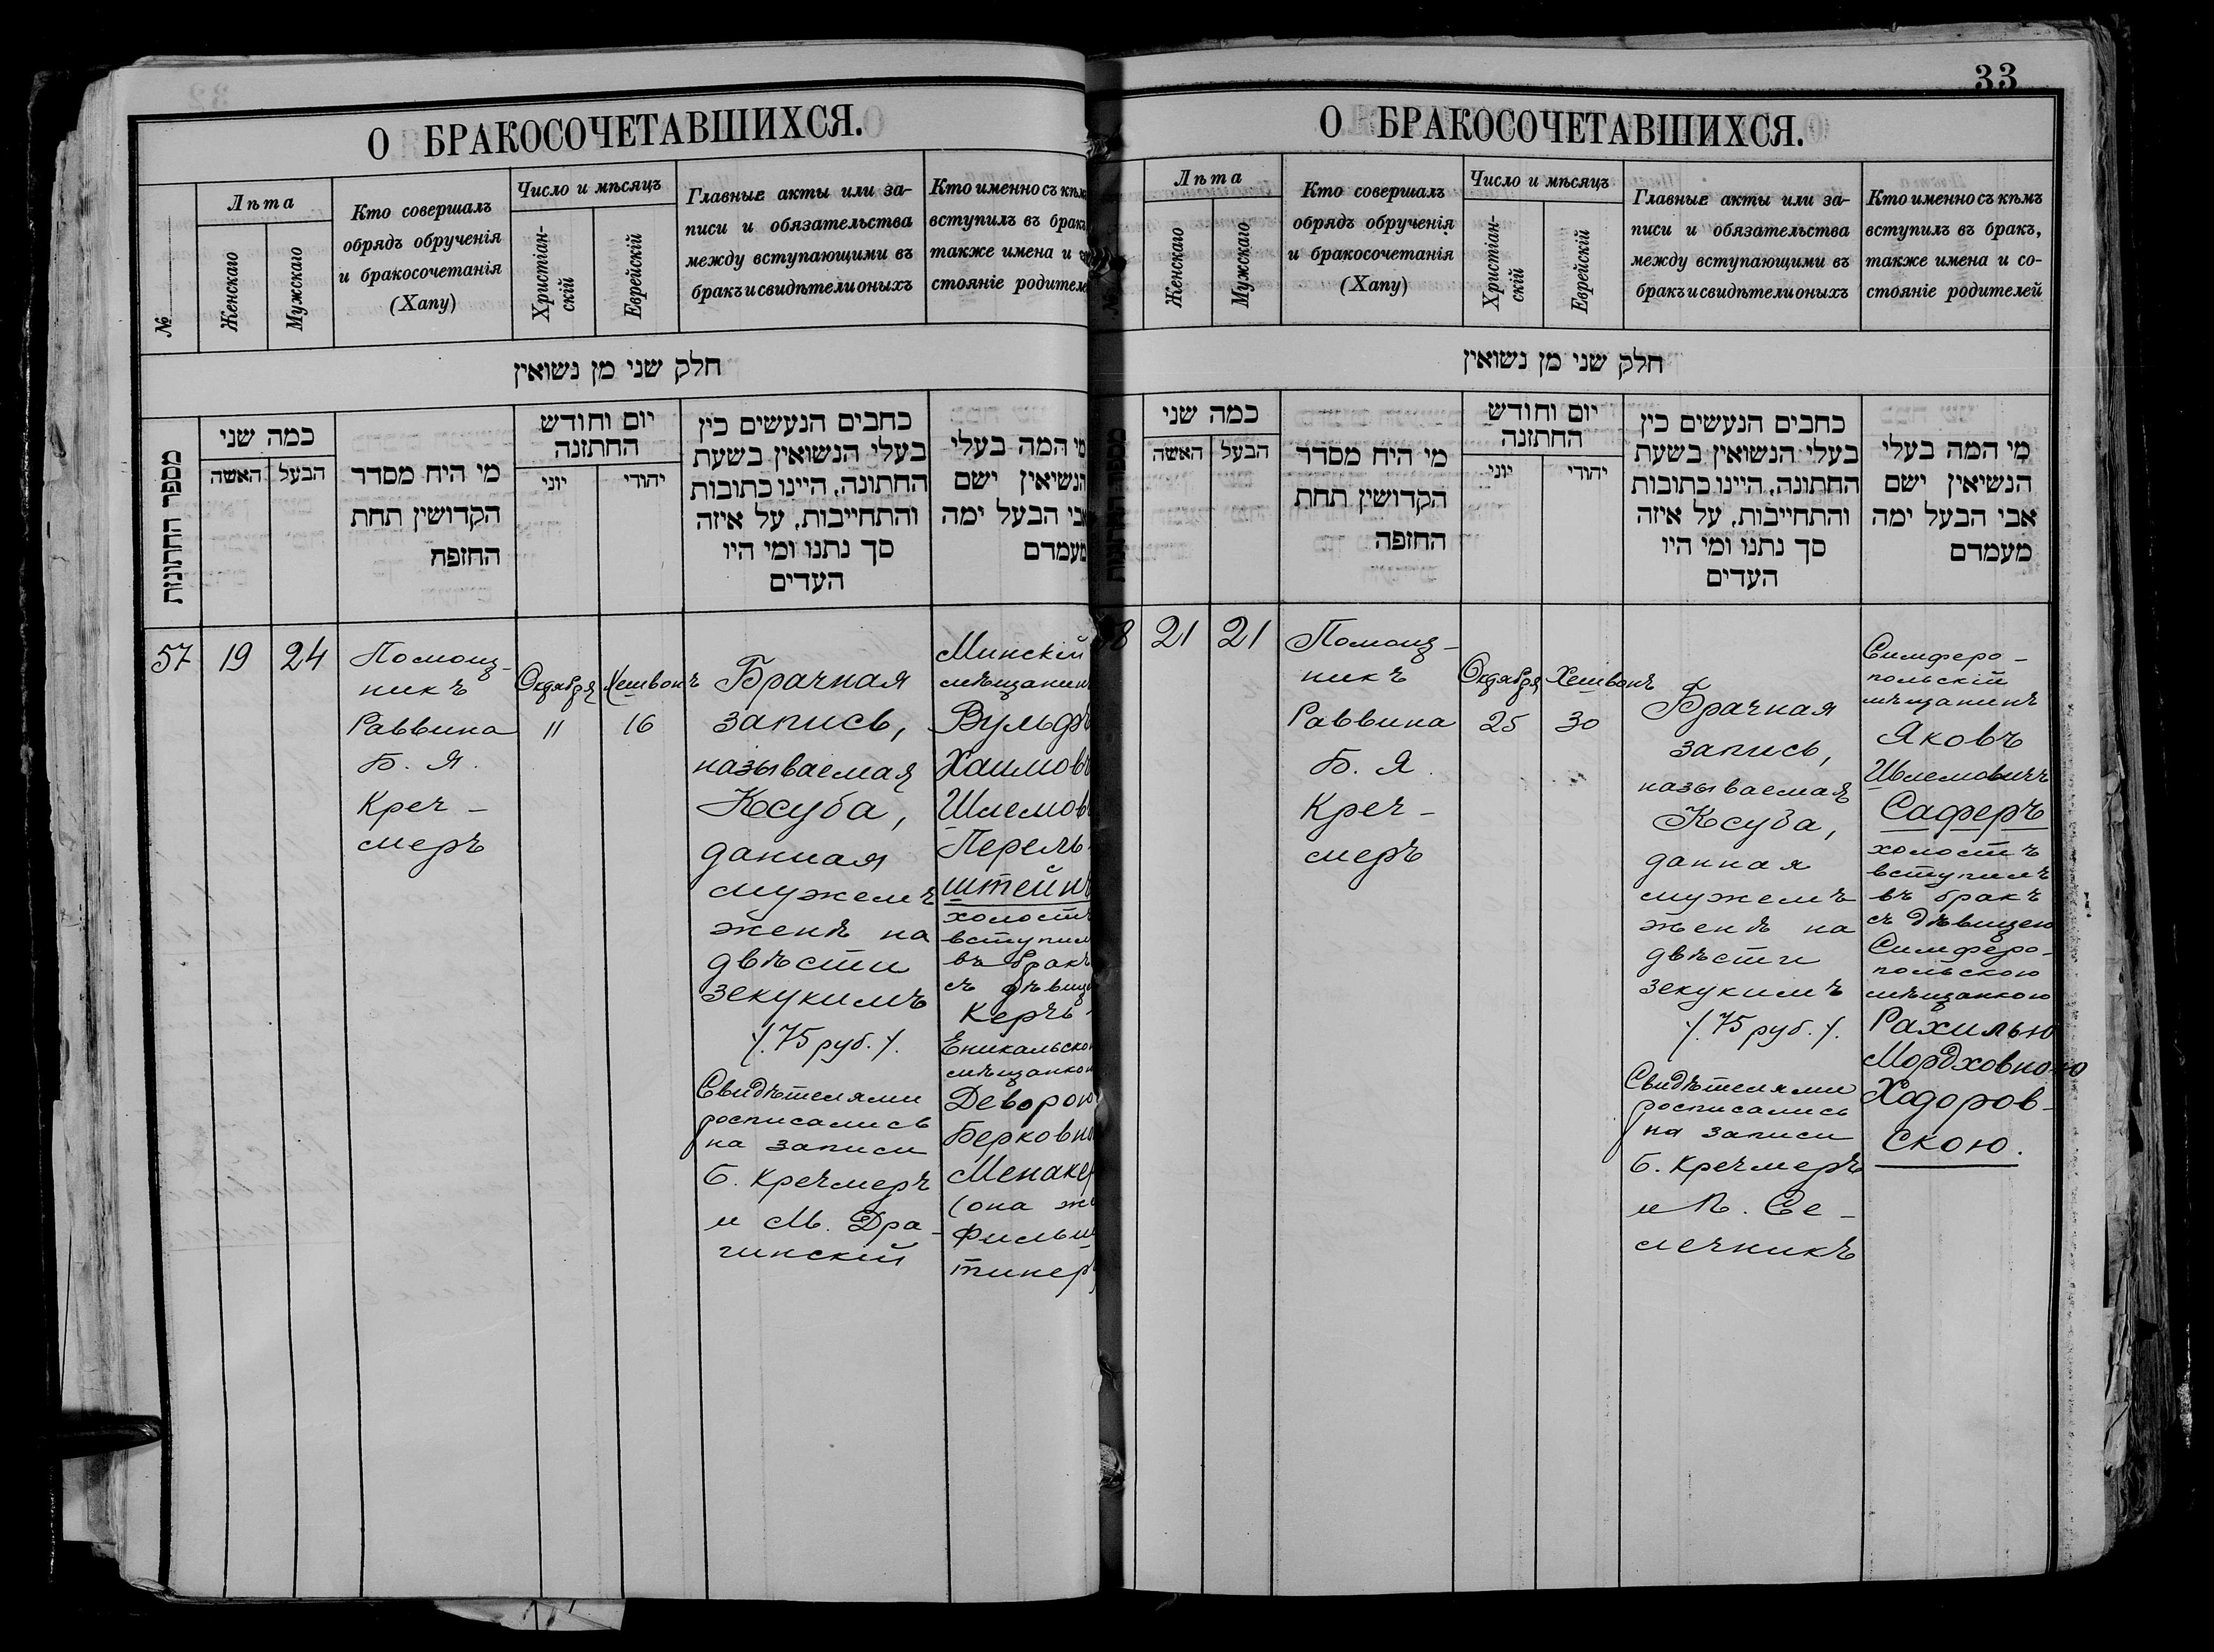 О БРАКОСОЧЕТАВШИХСЯ.
№
Лѣта
Женскаго
Мужскаго
Кто совершалъ
обрядъ обрученія
и бракосочетанія
(Хапу)
Число и мѣсяцъ
Христіан-
скій
Еврейскій
Главные акты или за-
писи и обязательства
между вступающими въ
бракъ и свидѣтели оныхъ
Кто именно съ кѣм
вступилъ въ брак
также имена и
стояніе родителе
חלק שני מן נשואין
מספר החתונות
כמה שני
האשה
הבעל
מי היח מסדר
הקדושין תחת
החזפח
יום וחודש
החתזנה
יוני
יהודי
כחבים הנעשים כין
בעלי הנשואין בשעת
החתונה, היינו כתובות
והתחייבות, על איזה
סך נתנו ומי היו
העדים
מי המה בעלי
הנשיאין ישם
אבי הבעל ימה
מעמדם
57
19
24
Помощ-
никъ
Раввина
Б. Я.
Креч-
меръ
Октября
11
Хешвонъ
16
Брачная
запись,
называемая
Ксуба,
данная
мужемъ
женѣ на
двѣсти
зекукимъ
/. 75 руб. /.
Свидѣтелями
росписались
на записи
Б. Кречмеръ
и М. Дра-
гинскій
Минскій
мѣщанинъ
Вульфъ
Хаимовъ
Шлемов
Перель-
штейнъ
холостъ
вступил
въ бракъ
съ дѣвице
Керчь-
Еникальско
мѣщанко
Деворою
Берковно
Менакер
(она же
Фильш
тинер)
33
О БРАКОСОЧЕТАВШИХСЯ.
№
Лѣта
Женскаго
Мужскаго
Кто совершалъ
обрядъ обрученія
и бракосочетанія
(Хапу)
Число и мѣсяцъ
Христіан-
скій
Еврейскій
Главные акты или за-
писи и обязательства
между вступающими въ
бракъ и свидѣтели оныхъ
Кто именно съ кѣмъ
вступилъ въ бракъ,
также имена и со-
стояніе родителей
חלק שני מן נשואין
כמה שני
האשה
הבעל
מי היח מסדר
הקדושין תחת
החזפה
יום וחודש
החתזנה
יוני
יהודי
כחבים הנעשים כין
בעלי הנשואין בשעת
החתונה, היינו כתובות
והתחייבות, על איזה
סך נתנו ומי היו
העדים
מי המה בעלי
הנשיאין ישם
אבי הבעל ימה
מעמדם
58
21
21
Помощ-
никъ
Раввина
Б. Я.
Креч-
меръ
Октября
25
Хешвонъ
30
Брачная
запись,
называемая
Ксуба,
данная
мужемъ
женѣ на
двѣсти
зекукимъ
/. 75 руб. /.
Свидѣтелями
росписались
на записи
Б. Кречмеръ
и П. Се-
лечникъ
Симферо-
польскій
мѣщанинъ
Яковъ
Шлемовичъ
Саферъ
холостъ
вступилъ
въ бракъ
съ дѣвицею
Симферо-
польскою
мѣщанкою
Рахилью
Мордховною
Ходоров-
скою.